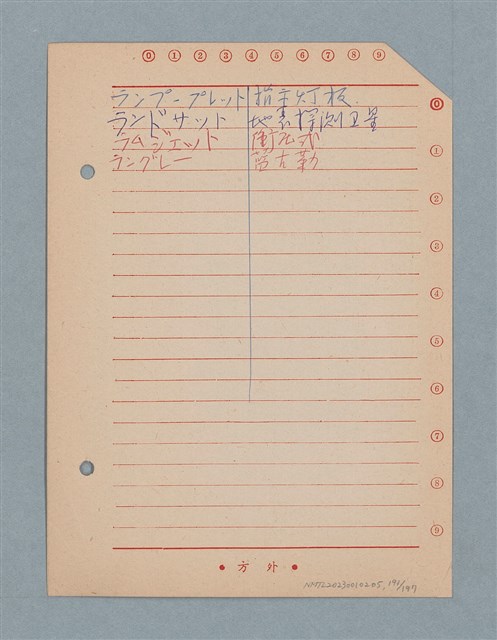 0 1 2 3 4 5 6 7 8 9
ランプープレット 指示灯板
ランドサット 地表探測卫星
ラムジェット 衝圧式
ラングレー 蘭古勒
0
1
2
3
4
5
6
7
8
9
• 方外 •
NMTL20230010205, 196/197